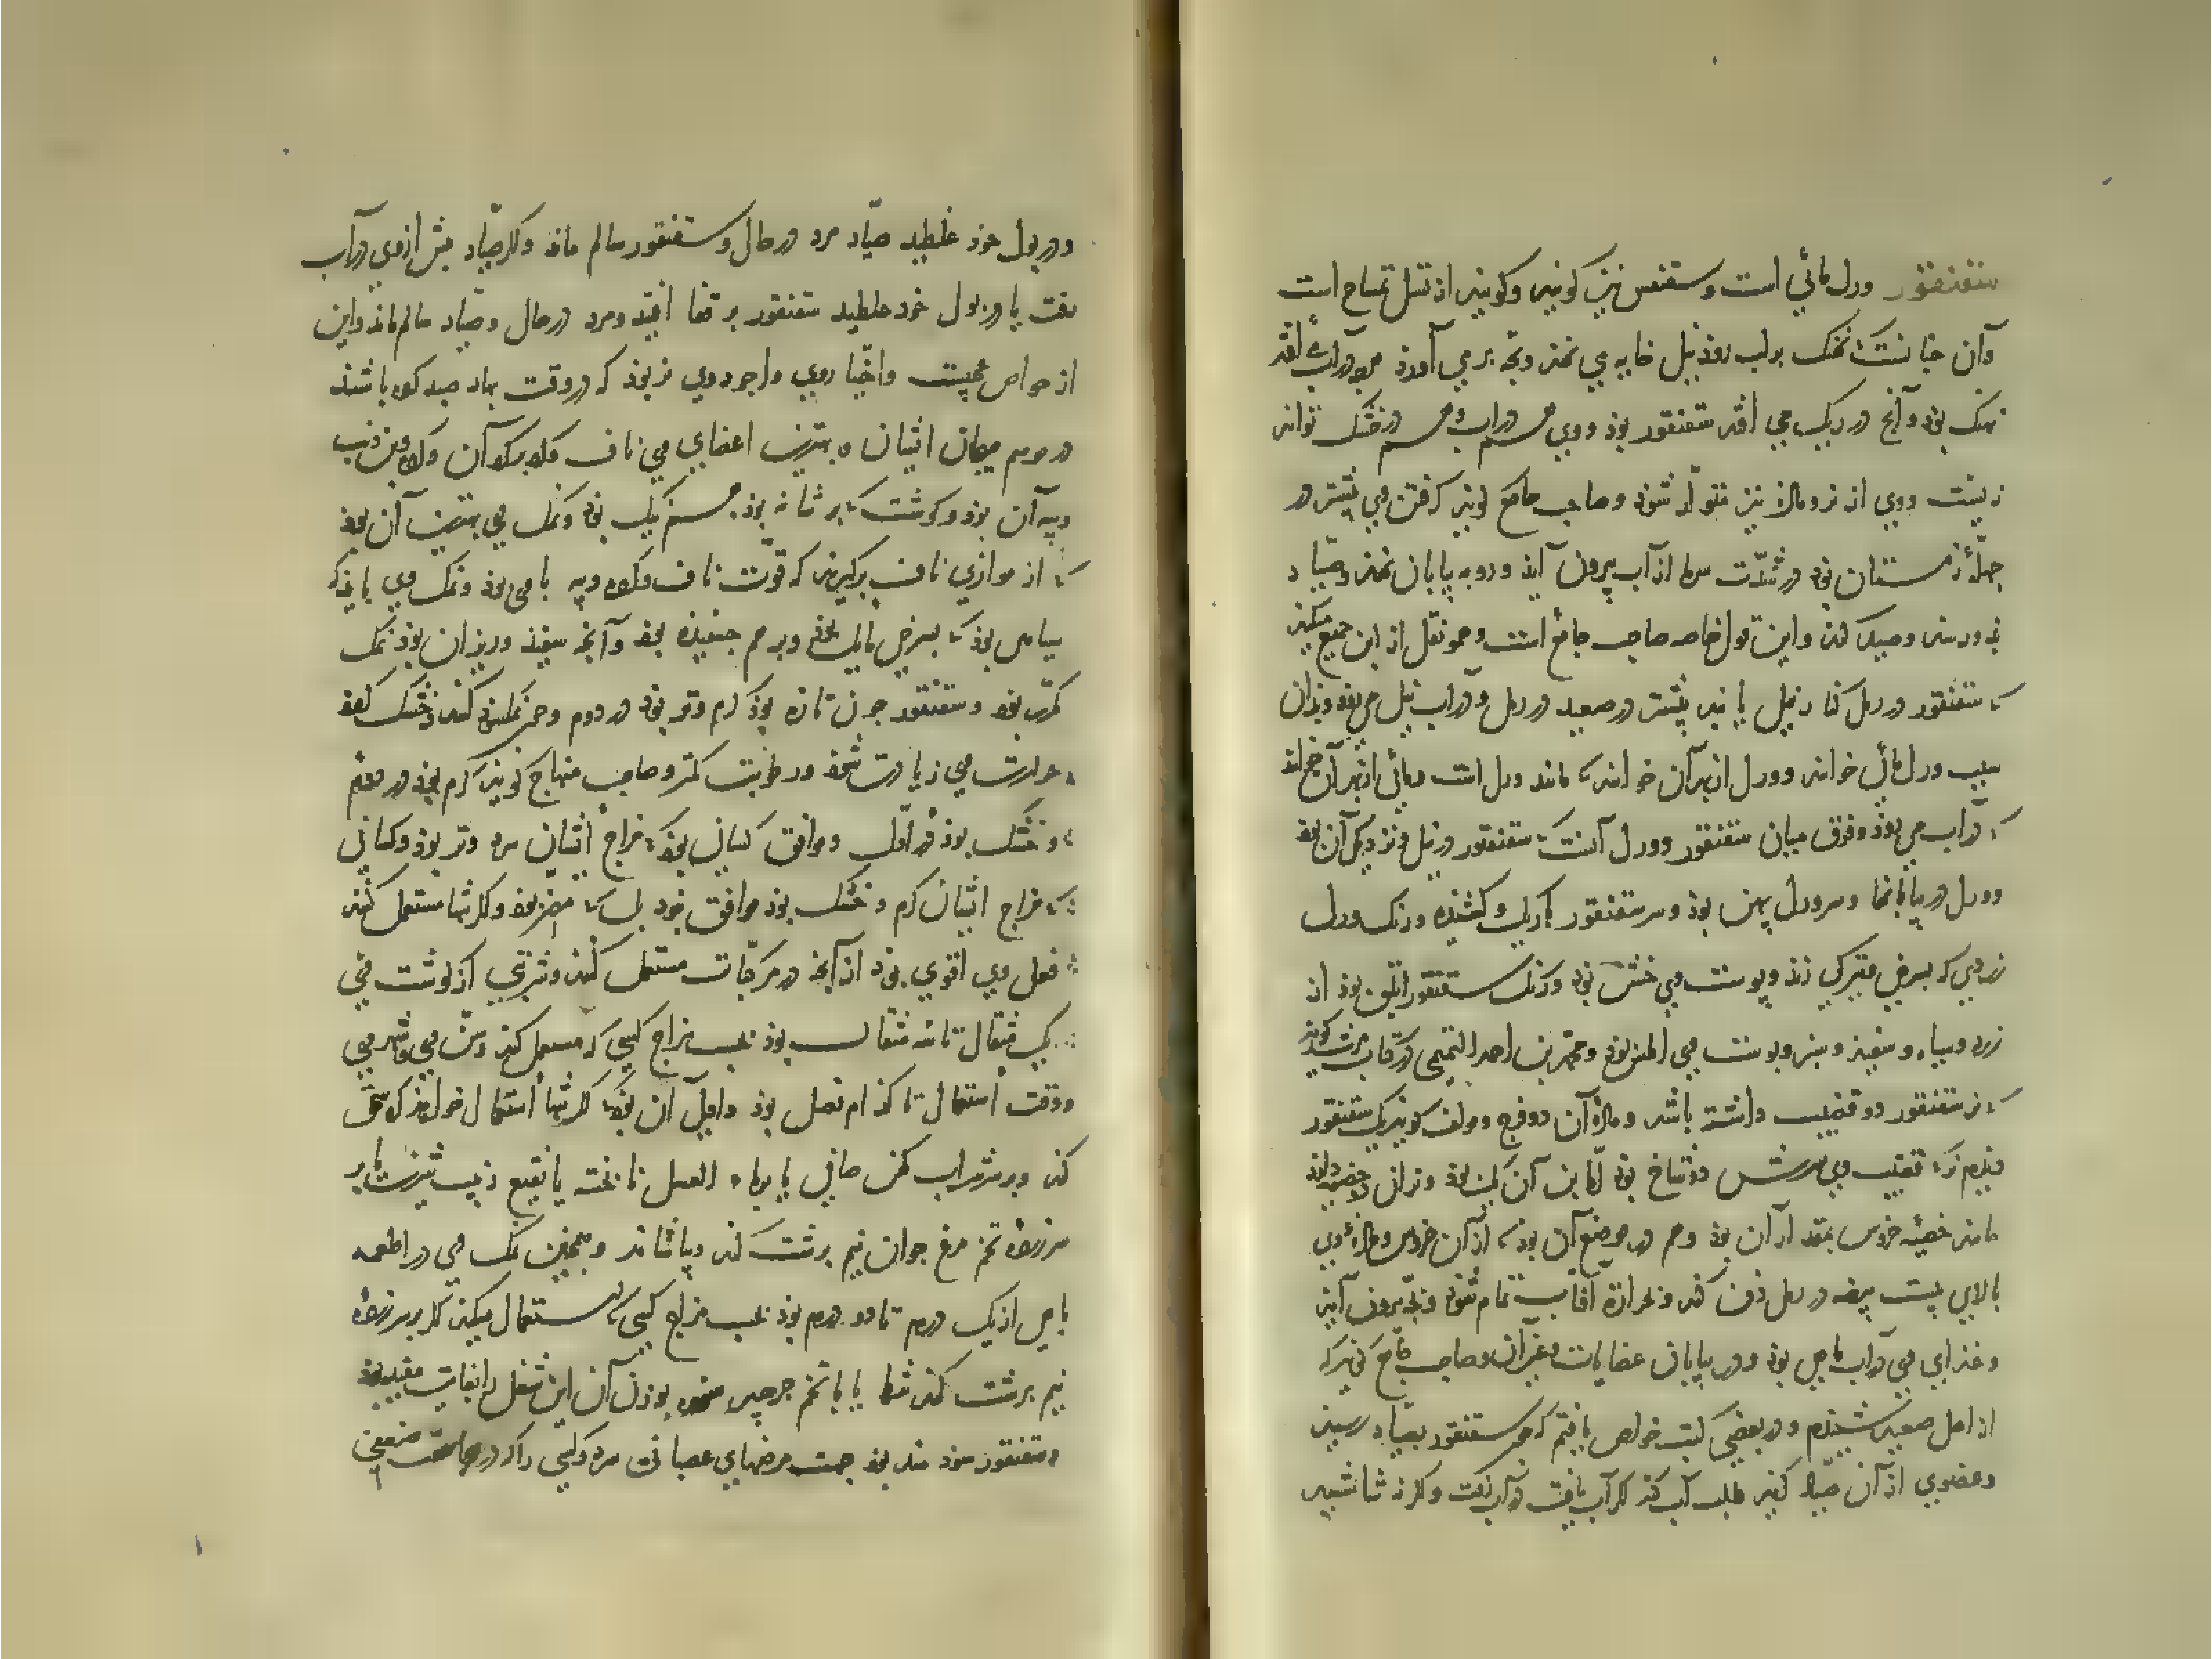 سقنقور ورل مائی است و سقنقس نیز گویند و گویند از نسل تمساح است
و آن چنانست که نهنک بر لب رود نیل خایه می نهد و بچه بر می آورد هرچه در آب افتد
نهنک بود و آنچ در ریک می افتد سقنقور بود و وی هم در آب و هم در خشک تواند
زیست و وی از نر و ماده نیز متولد شود و صاحب جامع گوید گرفتن وی بیشتر در
چله زمستان بود در شدت سرما از آب بیرون آید و رو به بیابان نهد و صیاد
در رسد و صید کند و این قول خاصه صاحب جامع است و هو نقل از ابن جمیع میکند
که سقنقور در رمل کنار نیل یابند بیشتر در صعید در رمل و در آب نیل می بود و بدان
سبب ورل مائی خوانند و ورل از بهر آن خوانند که مانند ورل است و مائی از بهر آن خوانند
که در آب می بود و فرق میان سقنقور و ورل آنست که سقنقور در نیل و نزدیک آن بود
و ورل در بیابانها و سر ورل پهن بود و سر سقنقور باریک و کشیده و رنک ورل
زردی که بسرخی و تیرگی زند و پوست وی خشن بود و رنک سقنقور ابلق بود از
زرد و سیاه و سفید و سبز و پوست وی املس بود و محمد بن احمد التمیمی در کتاب مرشد گوید
که نر سقنقور دو قضیب داشته باشد و ماده آن دو فرج و مولف گوید یک سقنقور
دیدم نر که قضیب وی سرش دو شاخ بود اما بن آن یک بود و نر آن دو خصیه دارد
مانند خصیه خروس بمقدار آن بود و هم در موضع آن بود که از آن خروس و ماده وی
بالای بیست بیضه در رمل دفن کند و بحرارت آفتاب تمام شود و بچه بیرون آید
و غذای وی در آب ماهی بود و در بیابان عضایات و غیر آن و صاحب جامع گوید که
از اهل صعید شنیدم و در بعضی کتب خواص یافتم که هر سقنقور بصیاد رسید
و عضوی از آن صیاد گزید طلب آب کند اگر آب یافت در آب رفت و اگر نه شاشید
و در بول خود غلطید صیاد مرد در حال و سقنقور سالم ماند و اگر صیاد پیش از وی در آب
رفت یا در بول خود غلطید سقنقور بر قفا افتد و مرد در حال و صیاد سالم ماند و این
از خواص عجیبست و اختیار وی و اجود وی نر بود که در وقت بهار صید کرده باشند
در موسم هیجان ایشان و بهترین اعضای وی ناف و گرده و بیکو آن و گرده و بن ذنب
و پیه آن بود و گوشت که بر مثانه بود هم نیک بود و نمک وی بهترین آن بود
که از موازی ناف بر گیرند که قوت ناف و گرده و پیه با وی بود و نمک وی باید که
سیاهی بود که بسرخی مایل بود و بر هم چسبیده بود و آنچه سفید و ریزان بود نمک
کمتر بود و سقنقور چون تازه بود گرم و تر بود در دوم و چون نمکسود کنند و خشک کردد
حرارت وی زیادت شود و رطوبت کمتر و صاحب منهاج گوید گرم بود در دوم
و خشک بود در اول و موافق کسانی بود که مزاج ایشان سرد و تر بود و کسانی
که مزاج ایشان گرم و خشک بود موافق نبود بل که مضر بود و اگر تنها مستعمل کنند
فعل وی اقوی بود از آنچه در مرکبات مستعمل کنند و شربتی از گوشت وی
یک مثقال تا سه مثقال بود بحسب مزاج کسی که مستعمل کند و سن وی و شهر وی
و وقت استعمال تا کدام فصل بود و اولی آن بود که اگر تنها استعمال خواهند کرد سحق
کنند و بر سر شراب کهن صافی یا بماء العسل نا پخته یا نقیع زبیب شیرین یا بر
سر زرده تخم مرغ جوان نیم برشت کنند و بیاشامند و همچنین نمک وی در اطعمه
یا هی از یک درم تا دو درم بود بحسب مزاج کسی که استعمال میکند اگر بر سر زرده
نیم برشت کنند تنها یا با تخم جرجیر بوزن آن این شغل را بغایت مفید بود
و سقنقور سودمند بود جهت مرضهای عصبانی سرد و کسی را که در جماعت ضعفی